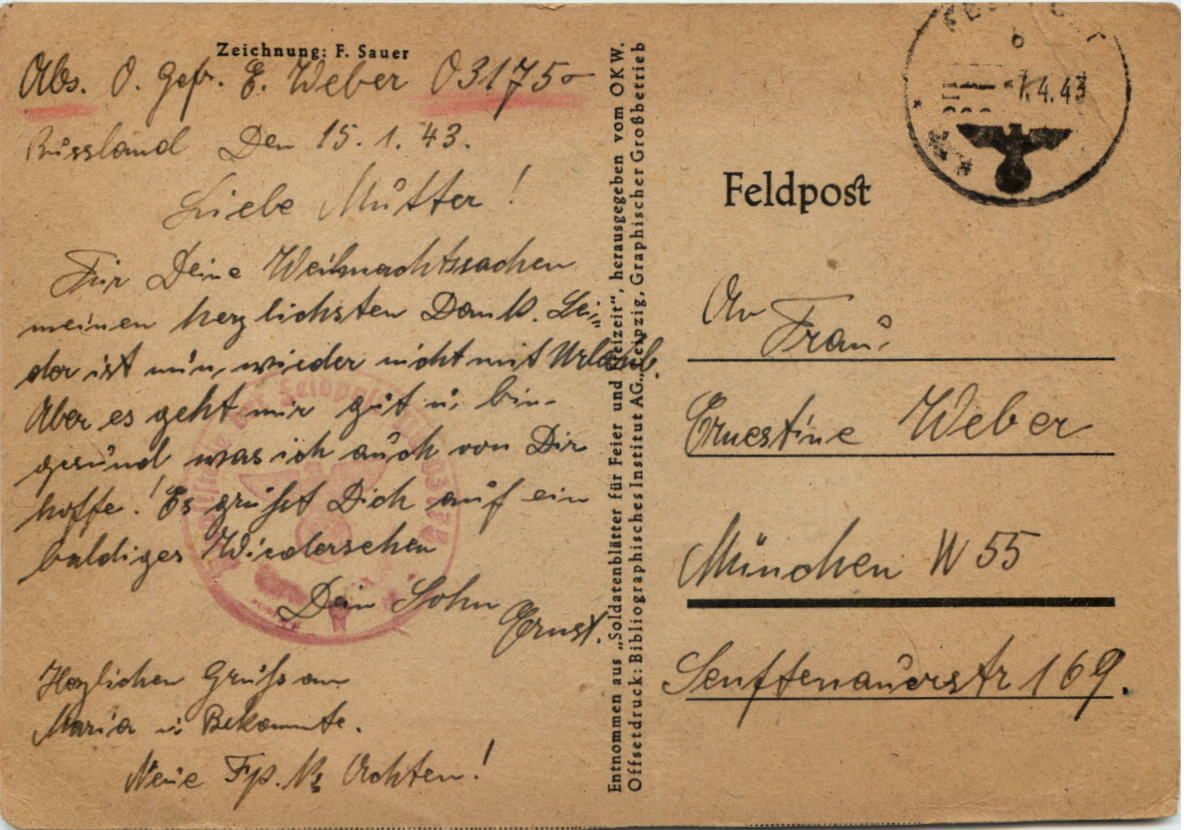 Zeichnung: F. Sauer
Abs. O. Gefr. E. Weber 03175
Russland Den 15. 1. 43.
Liebe Mutter!
Für Deine Weihnachtssachen
meinen herzlichsten Dank. Lei-
der ist nun wieder nicht mit Urlaub.
Aber es geht mir gut u. bin
gesund was ich auch von Dir
hoffe! Es grüßt Dich auf ein
baldiges Wiedersehen
Dein Sohn
Ernst.
Herzlichen Gruß an
Maria u Bekannte.
Neue Fp. Nr Achten!
Entnommen aus „Soldatenblätter für Feier und Freizeit“, herausgegeben vom OKW.
Offsetdruck: Bibliographisches Institut AG., Leipzig, Graphischer Großbetrieb
b
7.4.43
Feldpost
An Frau
Ernestine Weber
München W 55
Senftenauerstr 169.